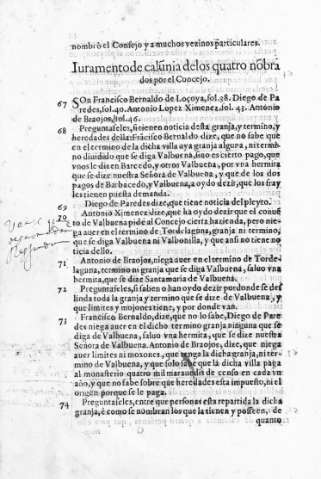 nombrò el Consejo y a muchos vezinos particulares.
Iuramento de calũnia delos quatro nõbra
dos por el Concejo.
67 SOn Francisco Bernaldo de Loçoya, fol. 38. Diego de Pa
redes, fol. 40. Antonio Lopez Ximenez, fol. 43. Antonio
de Braojos, fol. 46.
68 Preguntaseles, si tienen noticia desta granja, y termino, y
heredades della: Francisco Bernaldo dize, que no sabe que
en el termino de la dicha villa aya granja alguna, ni termi-
no diuidido que se diga Valbuena, sino es cierto pago, que
vnos le dizen Barcedo, y otros Valbuena, por vna hermita
que se dize nuestra Señora de Valbuena, y que de los dos
pagos de Barbacedo, y Valbuena, a oydo dezir, que los fray
les tienen puesta demanda.
69 Diego de Paredes dize, que tiene noticia del pleyto.
70 Antonio Ximenez dize, que ha oydo dezir que el conuẽ
to de Valbuena pide al Concejo cierta hazienda, pero niega
auer en el termino de Tordelaguna, granja ni termino,
que se diga Valbuena ni Valbonilla, y que ansi no tiene no
ticia dello.
71 Antonio de Braojos, niega auer en el termino de Torde-
laguna, termino ni granja que se diga Valbuena, saluo vna
hermita, que se dize Santa Maria de Valbuena.
72 Preguntaseles, si saben o han oydo dezir por donde se des
linda toda la granja y termino que se dize de Valbuena, y
que limites y mojones tiene, y por donde van.
73 Francisco Bernaldo, dize, que no lo sabe, Diego de Pare
des niega auer en el dicho termino granja ninguna que se
diga de Valbuena, saluo vna hermita, que se dize nuestra
Señora de Valbuena. Antonio de Braojos, dize, que niega
auer limites ni moxones, que tenga la dicha granja, ni ter-
mino de Valbuena, y que solo sabe que la dicha villa paga
al monasterio quatro mil marauedis de censo en cada vn
año, y que no sabe sobre que heredades esta impuesto, ni el
origen porque se le paga.
74 Preguntaseles, entre que personas esta repartida la dicha
granja, è como se nombran los que la tienen y posseen, de
quanto